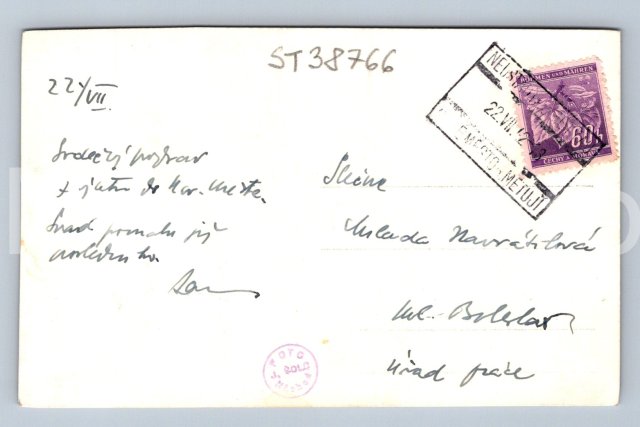 ST38766
22/VII.
Srdečný pozdrav
z výletu do Nov. Města.
Snad pomalu již
posledního.
Slečna
Mlada Navrátilová
Ml. Boleslav
Úřad práce
BÖHMEN UND MÄHREN
60h
ČECHY A MORAVA
22.VII.42
MĚSTO N. METUJÍ
FOTO